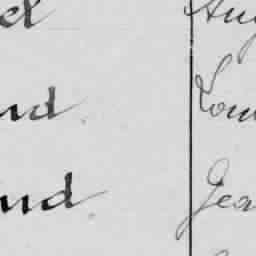 el Aug
nd. Lou
nd. Jea